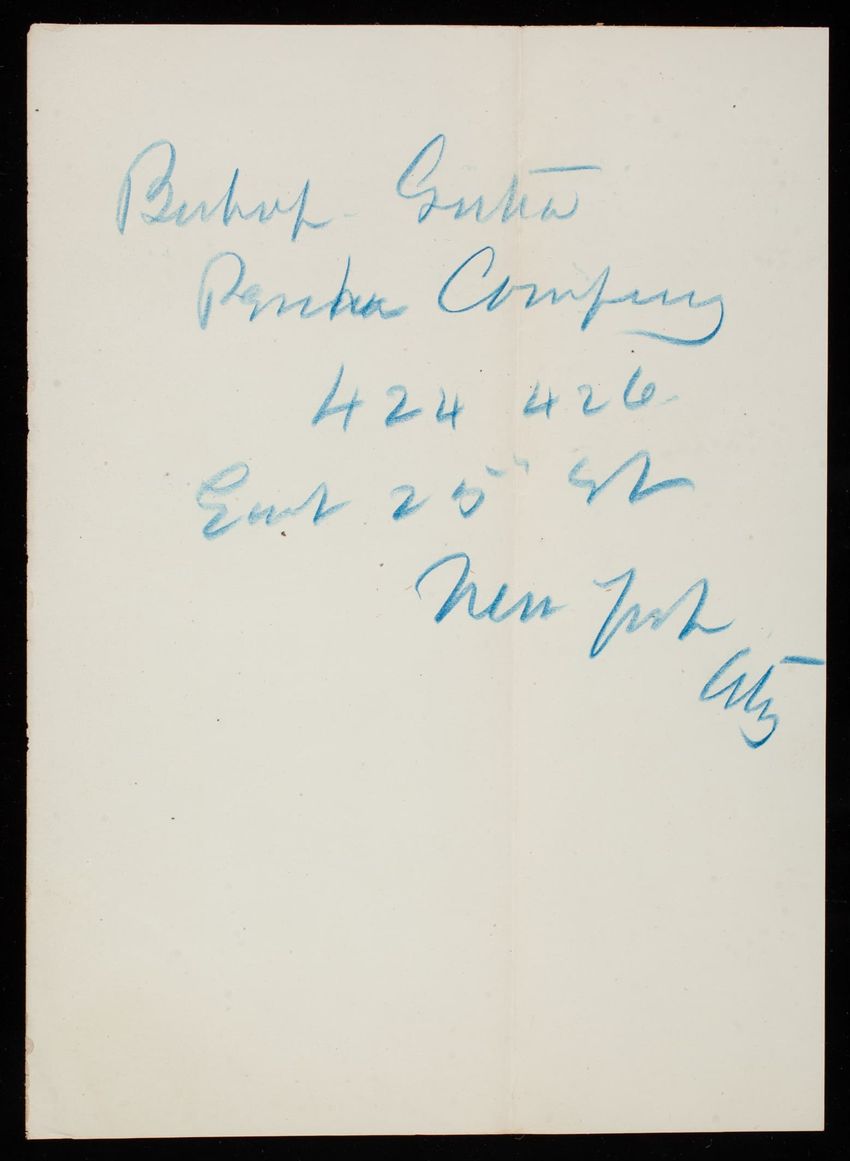 Bishop Gutta
Percha Company
424 426
East 25" St
New York
City